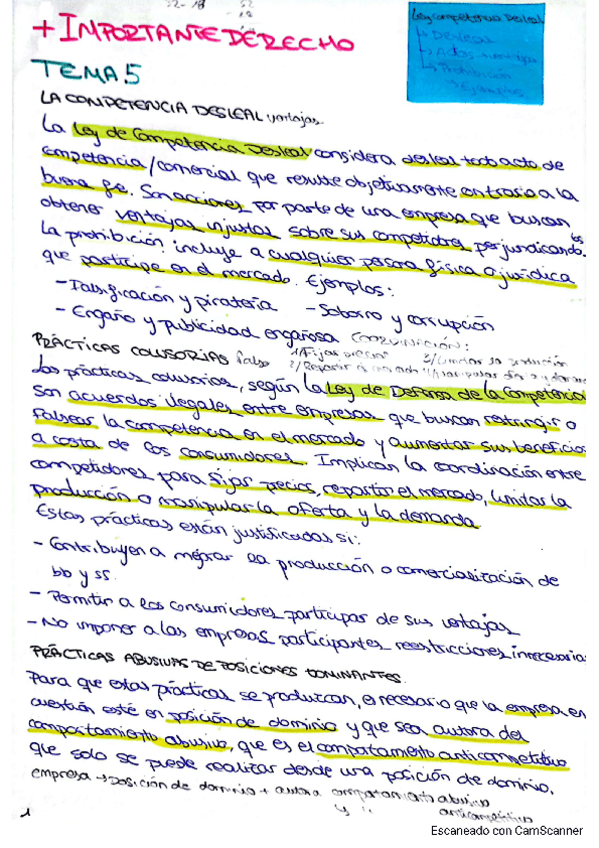 + IMPORTANTE DERECHO
TEMA 5
Ley competencia Desleal
→ Desleal
→ Actos
→ Prohibición
→ Ejemplos
LA COMPETENCIA DESLEAL ventajas
La Ley de Competencia Desleal considera desleal todo acto de
competencia/comercial que resulte objetivamente contrario a la
buena fe. Son acciones por parte de una empresa que buscan
obtener ventajas injustas sobre sus competidores, perjudicandolos
La prohibición incluye a cualquier persona física o jurídica
que participe en el mercado. Ejemplos:
- Falsificación y piratería - Soborno y corrupción
- Engaño y publicidad engañosa COORDINACIÓN:
1/Fijar precios 3/Limitar la producción
PRÁCTICAS COLUSORIAS falso 2/Repartir el mercado 4/manipular
Las prácticas colusorias, según la Ley de Defensa de la Competencia
Son acuerdos ilegales entre empresas que buscan restringir o
falsear la competencia en el mercado y aumentar sus beneficios
a costa de los consumidores. Implican la coordinación entre
competidores para fijar precios, repartir el mercado, limitar la
producción o manipular la oferta y la demanda
Estas prácticas están justificadas si:
- Contribuyen a mejorar la producción o comercialización de
bb y ss.
- Permitir a los consumidores participar de sus ventajas
- No imponer a las empresas participantes reestricciones innecesarias
PRÁCTICAS ABUSIVAS DE POSICIONES DOMINANTES.
Para que estas prácticas se produzcan, es necesario que la empresa en
cuestión esté en posición de dominio y que sea autora del
comportamiento abusivo, que es el comportamiento anticompetitivo
que solo se puede realizar desde una posición de dominio.
empresa → posición de dominio + autora comportamiento abusivo
y anticompetitivo
1
Escaneado con CamScanner